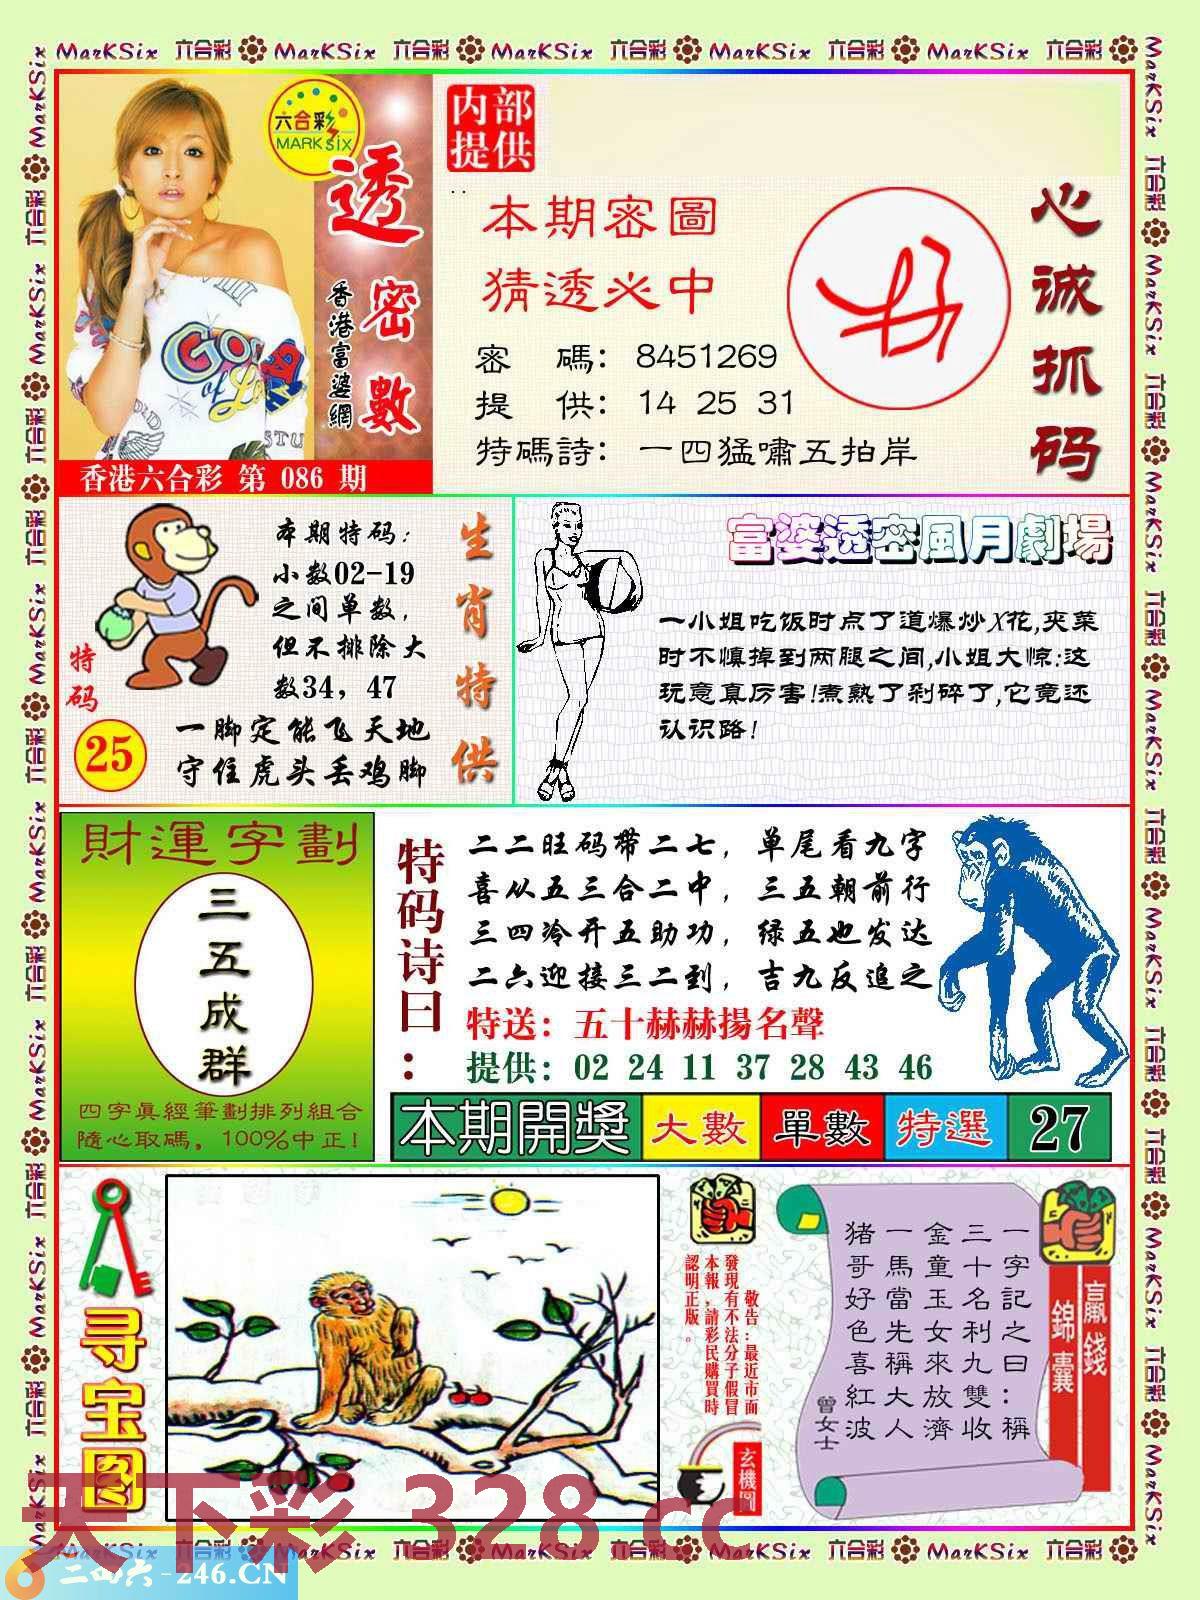 MarKSix 六合彩 MarKSix 六合彩 MarKSix 六合彩 MarKSix 六合彩 MarKSix 六合彩
六合彩
MARK SiX
透密數
香港富婆網
香港六合彩 第 086 期
内部
提供
本期密圖
猜透必中
密 碼: 8451269
提 供: 14 25 31
特碼詩: 一四猛嘯五拍岸
心诚抓码
特码
25
本期特码:
小数02-19
之间单数,
但不排除大
数34, 47
一脚定能飞天地
守住虎头丢鸡脚
生肖特供
富婆透密風月劇場
一小姐吃饭时点了道爆炒X花,夹菜
时不慎掉到两腿之间,小姐大惊:这
玩意真厉害!煮熟了剁碎了,它竟还
认识路!
財運字劃
三五成群
四字真經筆劃排列組合
隨心取碼, 100%中正!
特码诗曰:
二二旺码带二七, 单尾看九字
喜从五三合二中, 三五朝前行
三四冷开五助功, 绿五也发达
二六迎接三二到, 吉九反追之
特送: 五十赫赫揚名聲
提供: 02 24 11 37 28 43 46
本期開獎 大數 單數 特選 27
寻宝图
敬告:最近市面
發現有不法分子假冒
本報,請彩民購買時
認明正版。
玄機圖
一字記之曰:稱
三十名利九雙收
金童玉女來放濟
一馬當先稱大人
猪哥好色喜紅波
曾女士
贏錢
錦囊
天下彩 328.cc
二四六-246.CN
MarKSix 六合彩 MarKSix 六合彩 MarKSix 六合彩 MarKSix 六合彩 MarKSix 六合彩